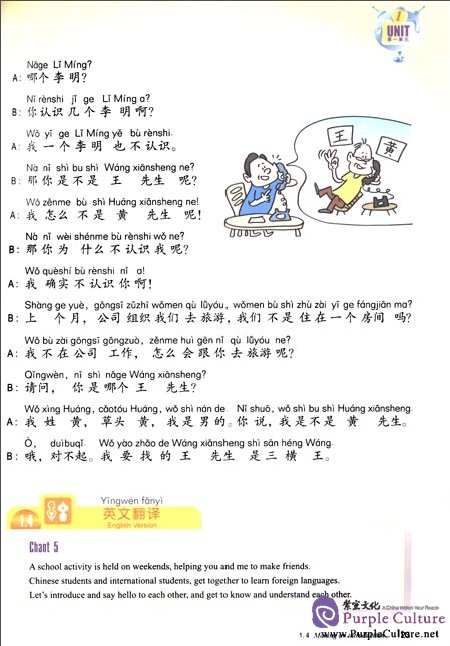 1
UNIT
第一单元
Nǎge Lǐ Míng?
A: 哪个李明?
Nǐ rènshi jǐ ge Lǐ Míng a?
B: 你认识几个李明啊?
Wǒ yī ge Lǐ Míng yě bù rènshi.
A: 我一个李明也不认识。
Nà nǐ shì bu shì Wáng xiānsheng ne?
B: 那你是不是王先生呢?
Wǒ zěnme bù shì Huáng xiānsheng ne!
A: 我怎么不是黄先生呢!
Nà nǐ wèi shénme bù rènshi wǒ ne?
B: 那你为什么不认识我呢?
Wǒ quèshí bù rènshi nǐ a!
A: 我确实不认识你啊!
Shàng ge yuè, gōngsī zǔzhī wǒmen qù lǚyóu, wǒmen bù shì zhù zài yī ge fángjiān ma?
B: 上个月, 公司组织我们去旅游, 我们不是住在一个房间吗?
Wǒ bù zài gōngsī gōngzuò, zěnme huì gēn nǐ qù lǚyóu ne?
A: 我不在公司工作, 怎么会跟你去旅游呢?
Qǐngwèn, nǐ shì nǎge Wáng xiānsheng?
B: 请问, 你是哪个王先生?
Wǒ xìng Huáng, cǎotóu Huáng, wǒ shì nán de. Nǐ shuō, wǒ shì bu shì Huáng xiānsheng.
A: 我姓黄, 草头黄, 我是男的。你说, 我是不是黄先生。
Ò, duìbuqǐ. Wǒ yào zhǎo de Wáng xiānsheng shì sān héng Wáng.
B: 哦, 对不起。我要找的王先生是三横王。
王
黄
1.4
Yīngwén fānyì
英文翻译
English Version
Chant 5
A school activity is held on weekends, helping you and me to make friends.
Chinese students and international students, get together to learn foreign languages.
Let's introduce and say hello to each other, and get to know and understand each other.
紫宝文化
Purple Culture
www.PurpleCulture.net
1.4